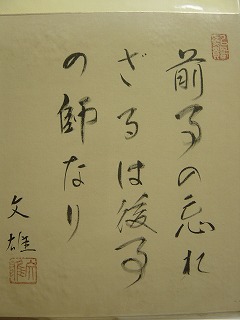 前事の忘れ
ざるは後事
の師なり
文雄